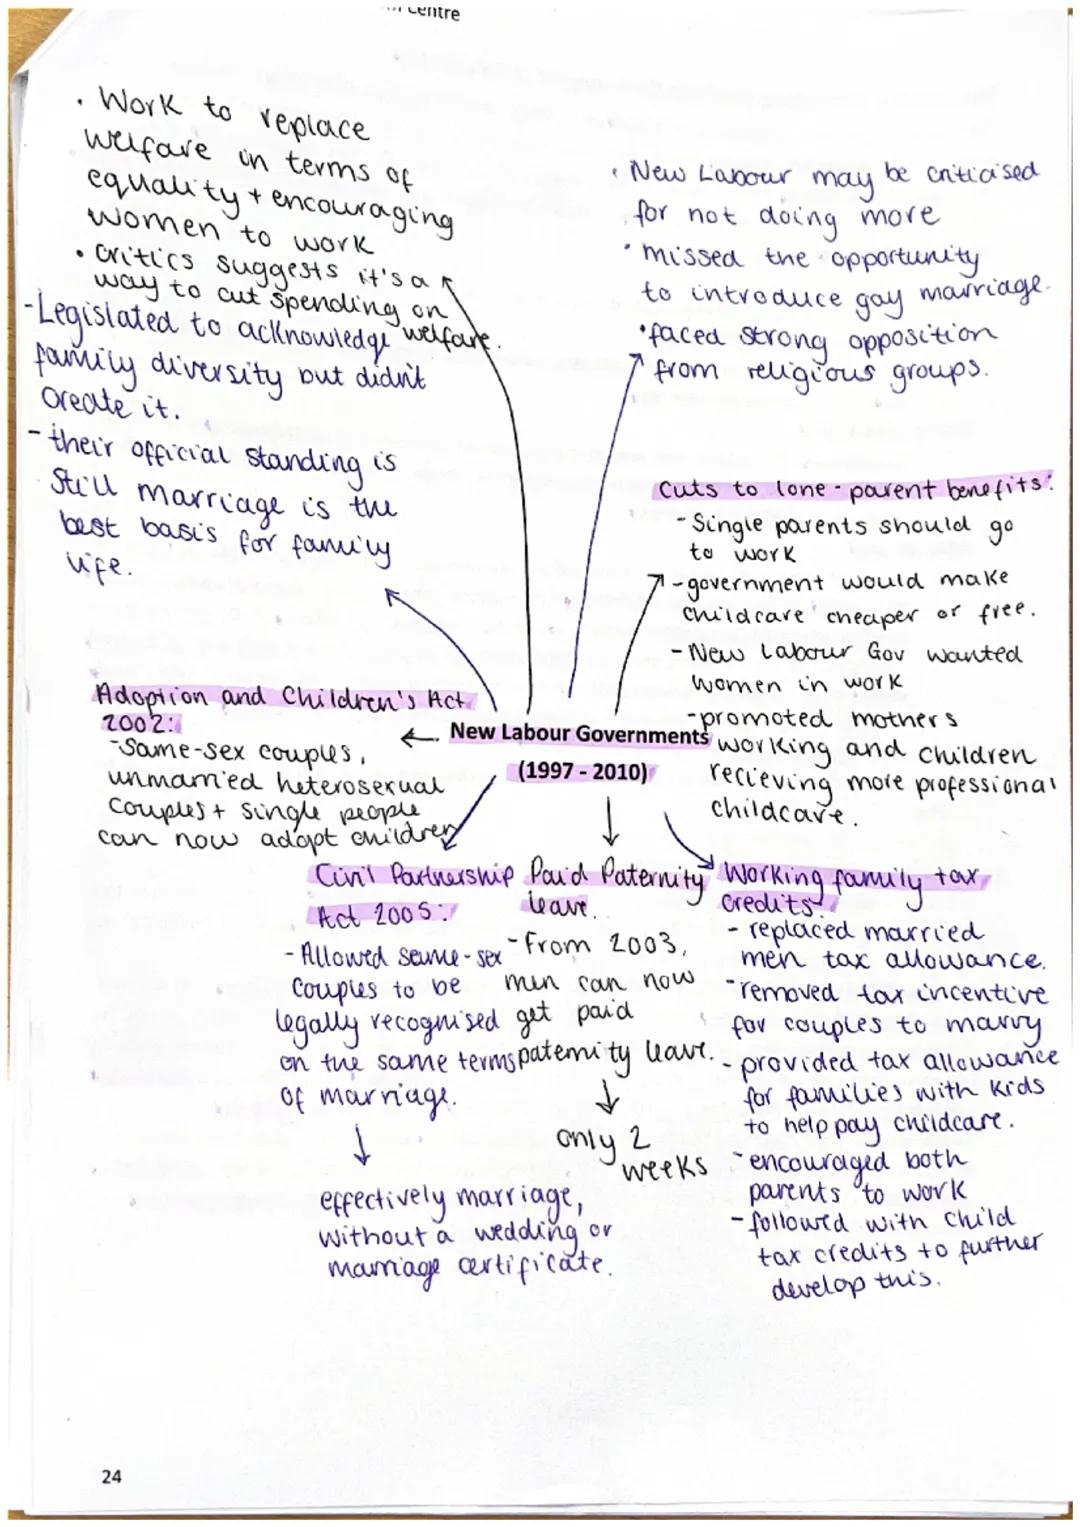 Centre
· Work to replace
welfare in terms of
equality + encouraging
women to work
· Critics suggests it's a
way to cut spending on
welfare.
- Legislated to acknowledge
family diversity but didn't
create it.
- their official standing is
still marriage is the
best basis for family
life.
· New Labour may be criticised
for not doing more
· missed the opportunity
to introduce gay marriage.
· faced strong opposition
from religious groups.
Cuts to lone-parent benefits:
- Single parents should go
to work
- government would make
childcare cheaper or free.
- New Labour Gov wanted
women in work
- promoted mothers
working and children
recieving more professional
childcare.
Adoption and Children's Act
2002:
- Same-sex couples,
unmarried heterosexual
couples + single people
can now adopt children
New Labour Governments
(1997 - 2010)
Civil Partnership
Act 2005:
- Allowed same-sex
couples to be
legally recognised
on the same terms
of marriage.
↓
effectively marriage,
without a wedding or
marriage certificate.
Paid Paternity
leave.
- From 2003,
men can now
get paid
paternity leave.
↓
only 2
weeks
Working family tax
credits:
- replaced married
men tax allowance.
- removed tax incentive
for couples to marry
- provided tax allowance
for families with kids
to help pay childcare.
- encouraged both
parents to work
- followed with child
tax credits to further
develop this.
24